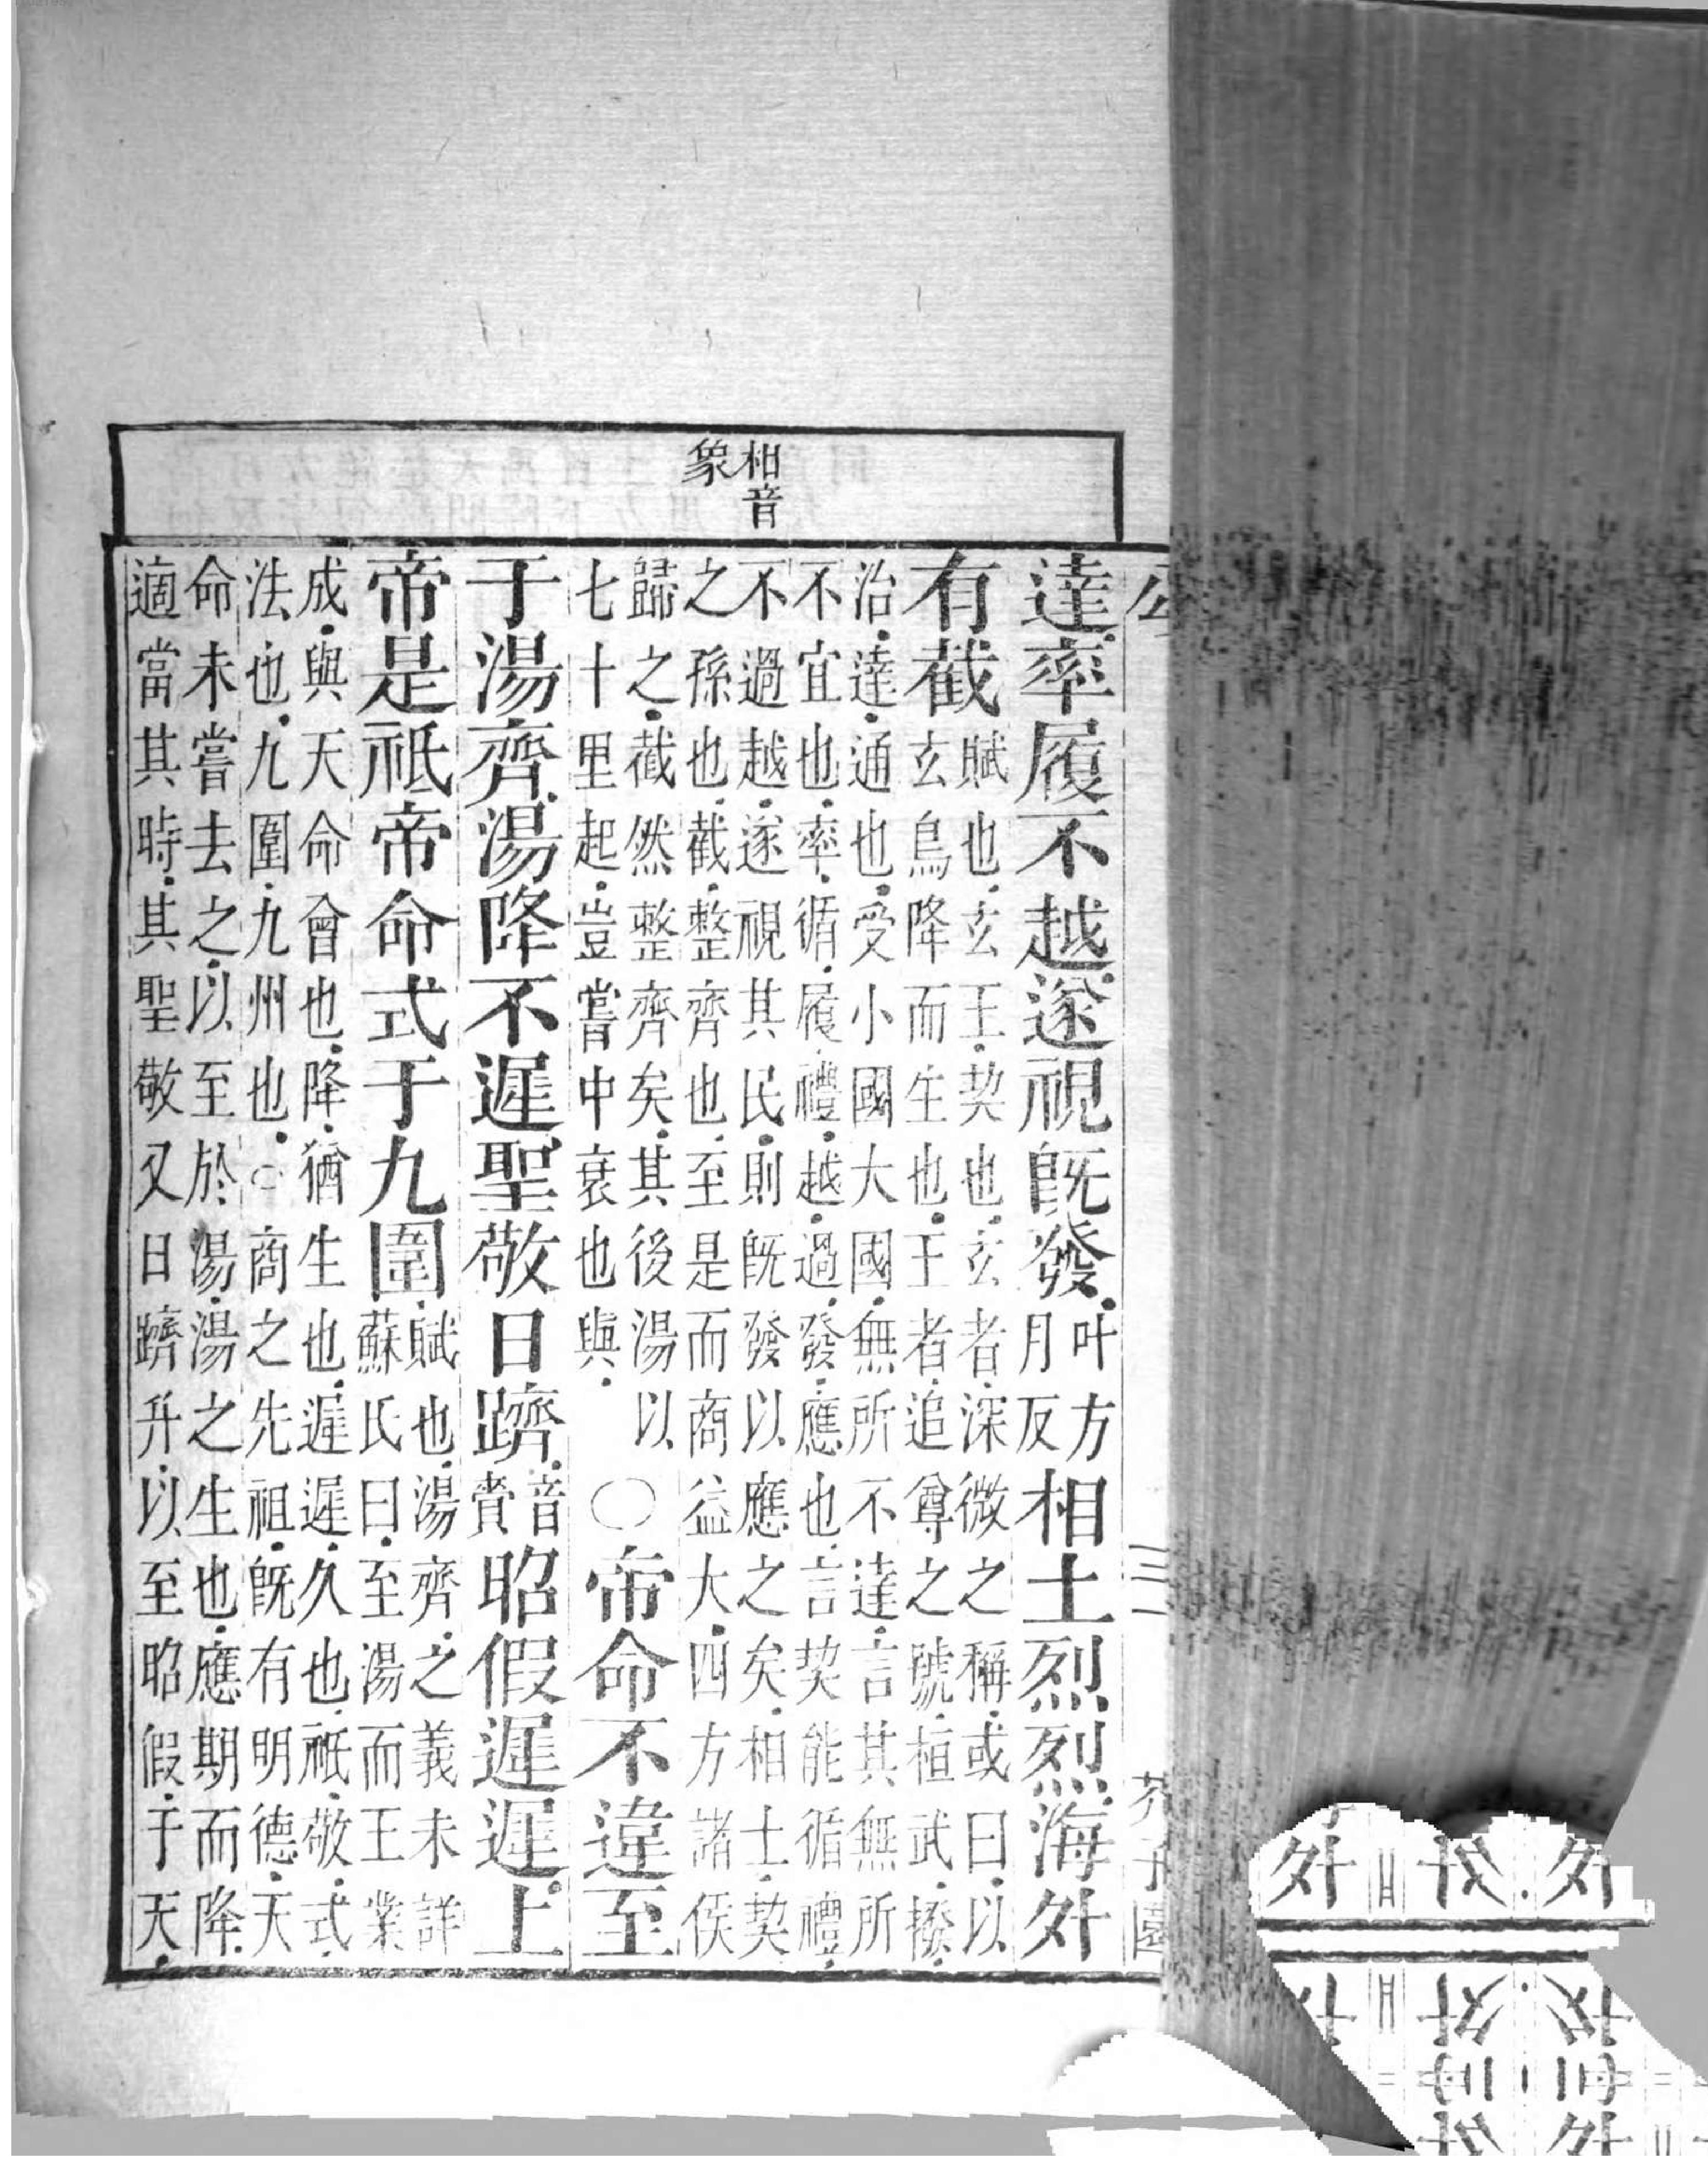 相音
象
達率履不越遂視旣發叶方月反相土烈烈海外
有截賦也玄王契也玄者深微之稱或曰以
玄鳥降而生也王者追尊之號桓武撥
治達通也受小國大國無所不達言其無所
不宜也率循履禮越過發應也言契能循禮
不過越遂視其民則旣發以應之矣相士契
之孫也截整齊也至是而商益大四方諸侯
歸之截然整齊矣其後湯以
七十里起豈嘗中衰也與○帝命不違至
于湯齊湯降不遲聖敬日躋音賷昭假遲遲上
帝是祗帝命式于九圍賦也湯齊之義未詳
蘇氏曰至湯而王業
成與天命會也降猶生也遲遲久也祗敬式
法也九圍九州也○商之先祖旣有明德天
命未嘗去之以至於湯湯之生也應期而降
適當其時其聖敬又日躋升以至昭假于天
芥子園